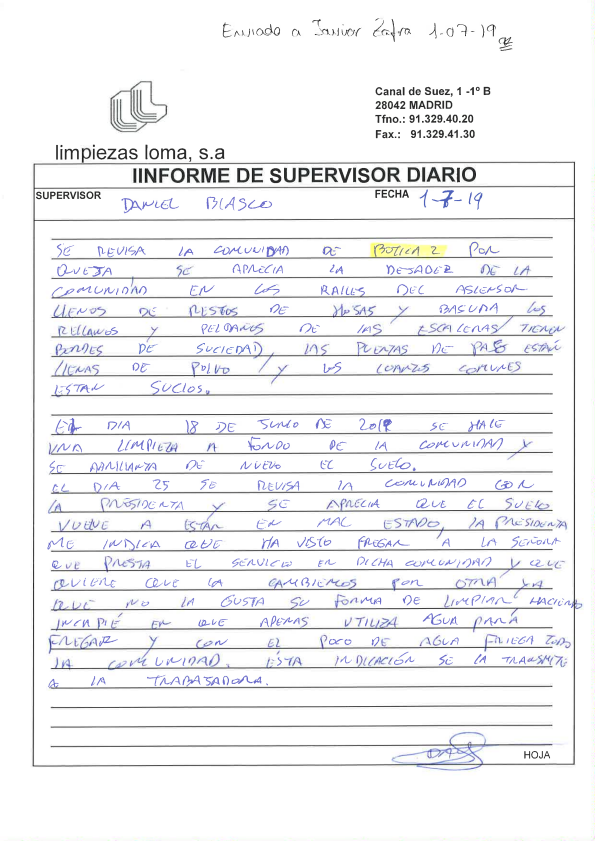 Enviado a Javier Zafra 1-07-19
Canal de Suez, 1 -1º B
28042 MADRID
Tfno.: 91.329.40.20
Fax.: 91.329.41.30
limpiezas loma, s.a
IINFORME DE SUPERVISOR DIARIO
SUPERVISOR DANIEL BLASCO FECHA 1-7-19
SE REVISA LA COMUNIDAD DE BOTICA 2 POR
QUEJA, SE APRECIA LA DEJADEZ DE LA
COMUNIDAD EN LOS RAILES DEL ASCENSOR
LLENOS DE RESTOS DE HOJAS Y BASURA LOS
RELLANOS Y PELDAÑOS DE LAS ESCALERAS TIENEN
BORDES DE SUCIEDAD, LAS PUERTAS DE PASO ESTÁN
LLENAS DE POLVO Y LOS CUARTOS COMUNES
ESTAN SUCIOS.
EL DIA 18 DE JUNIO DE 2019 SE HACE
UNA LIMPIEZA A FONDO DE LA COMUNIDAD Y
SE ABRILLANTA DE NUEVO EL SUELO.
EL DIA 25 SE REVISA LA COMUNIDAD CON
LA PRESIDENTA Y SE APRECIA QUE EL SUELO
VUELVE A ESTAR EN MAL ESTADO, LA PRESIDENTA
ME INDICA QUE HA VISTO FREGAR A LA SEÑORA
QUE PRESTA EL SERVICIO EN DICHA COMUNIDAD Y QUE
QUIERE QUE LA CAMBIEMOS POR OTRA YA
QUE NO LA GUSTA SU FORMA DE LIMPIAR HACIENDO
INCAPIÉ EN QUE APENAS UTILIZA AGUA PARA
FREGAR Y CON EL POCO DE AGUA FRIEGA TODO
LA COMUNIDAD. ÉSTA INDICACIÓN SE LA TRANSMITE
A LA TRABAJADORA.
HOJA